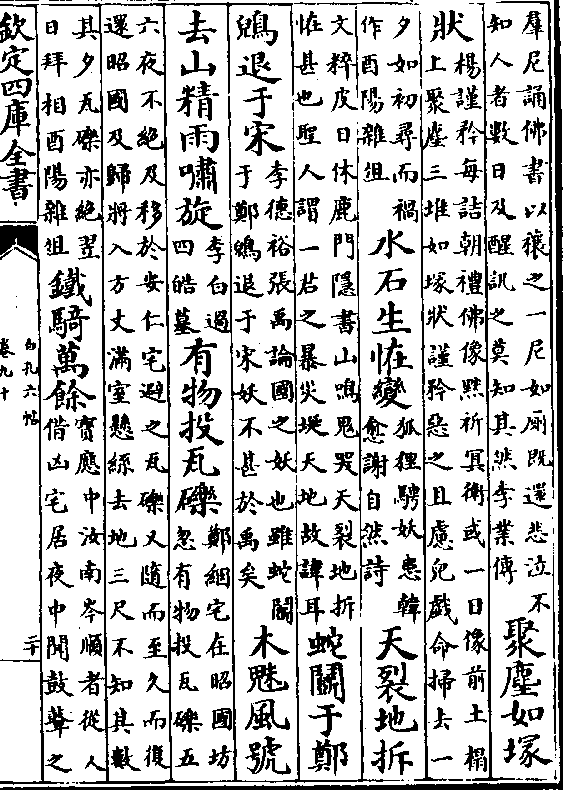 羣尼誦佛書以禳之一尼如厠既還悲泣不
知人者數日及醒訊之莫知其然李業傳
聚塵如塚
狀
楊謹矜每詰朝禮佛像黙祈冥衛或一日像前土榻
上聚塵三堆如塚狀謹矜惡之且慮兒戲命掃去一
夕如初尋而禍
作酉陽雜俎
水石生恠變
狐狸騁妖患韓
愈謝自然詩
天裂地拆
文粹皮日休鹿門隱書山鳴鬼哭天裂地折
恠甚也聖人謂一君之暴災埏天地故諱耳
蛇鬭于鄭
鶂退于宋
李德裕張禹論國之妖也雖蛇鬭
于鄭鶂退于宋妖不甚於禹矣
木魅風號
去山精雨嘯旋
李白過
四皓墓
有物投瓦礫
鄭絪宅在昭國坊
忽有物投瓦礫五
六夜不絶及移於安仁宅避之瓦礫又隨而至久而復
還昭國及歸將入方丈滿室懸絲去地三尺不知其數
其夕瓦礫亦絶翌
日拜相酉陽雜俎
鐵騎萬餘
寶應中汝南岑順者從人
借凶宅居夜中聞鼓鼙之
欽定四庫全書
白孔六帖
卷九十
二十